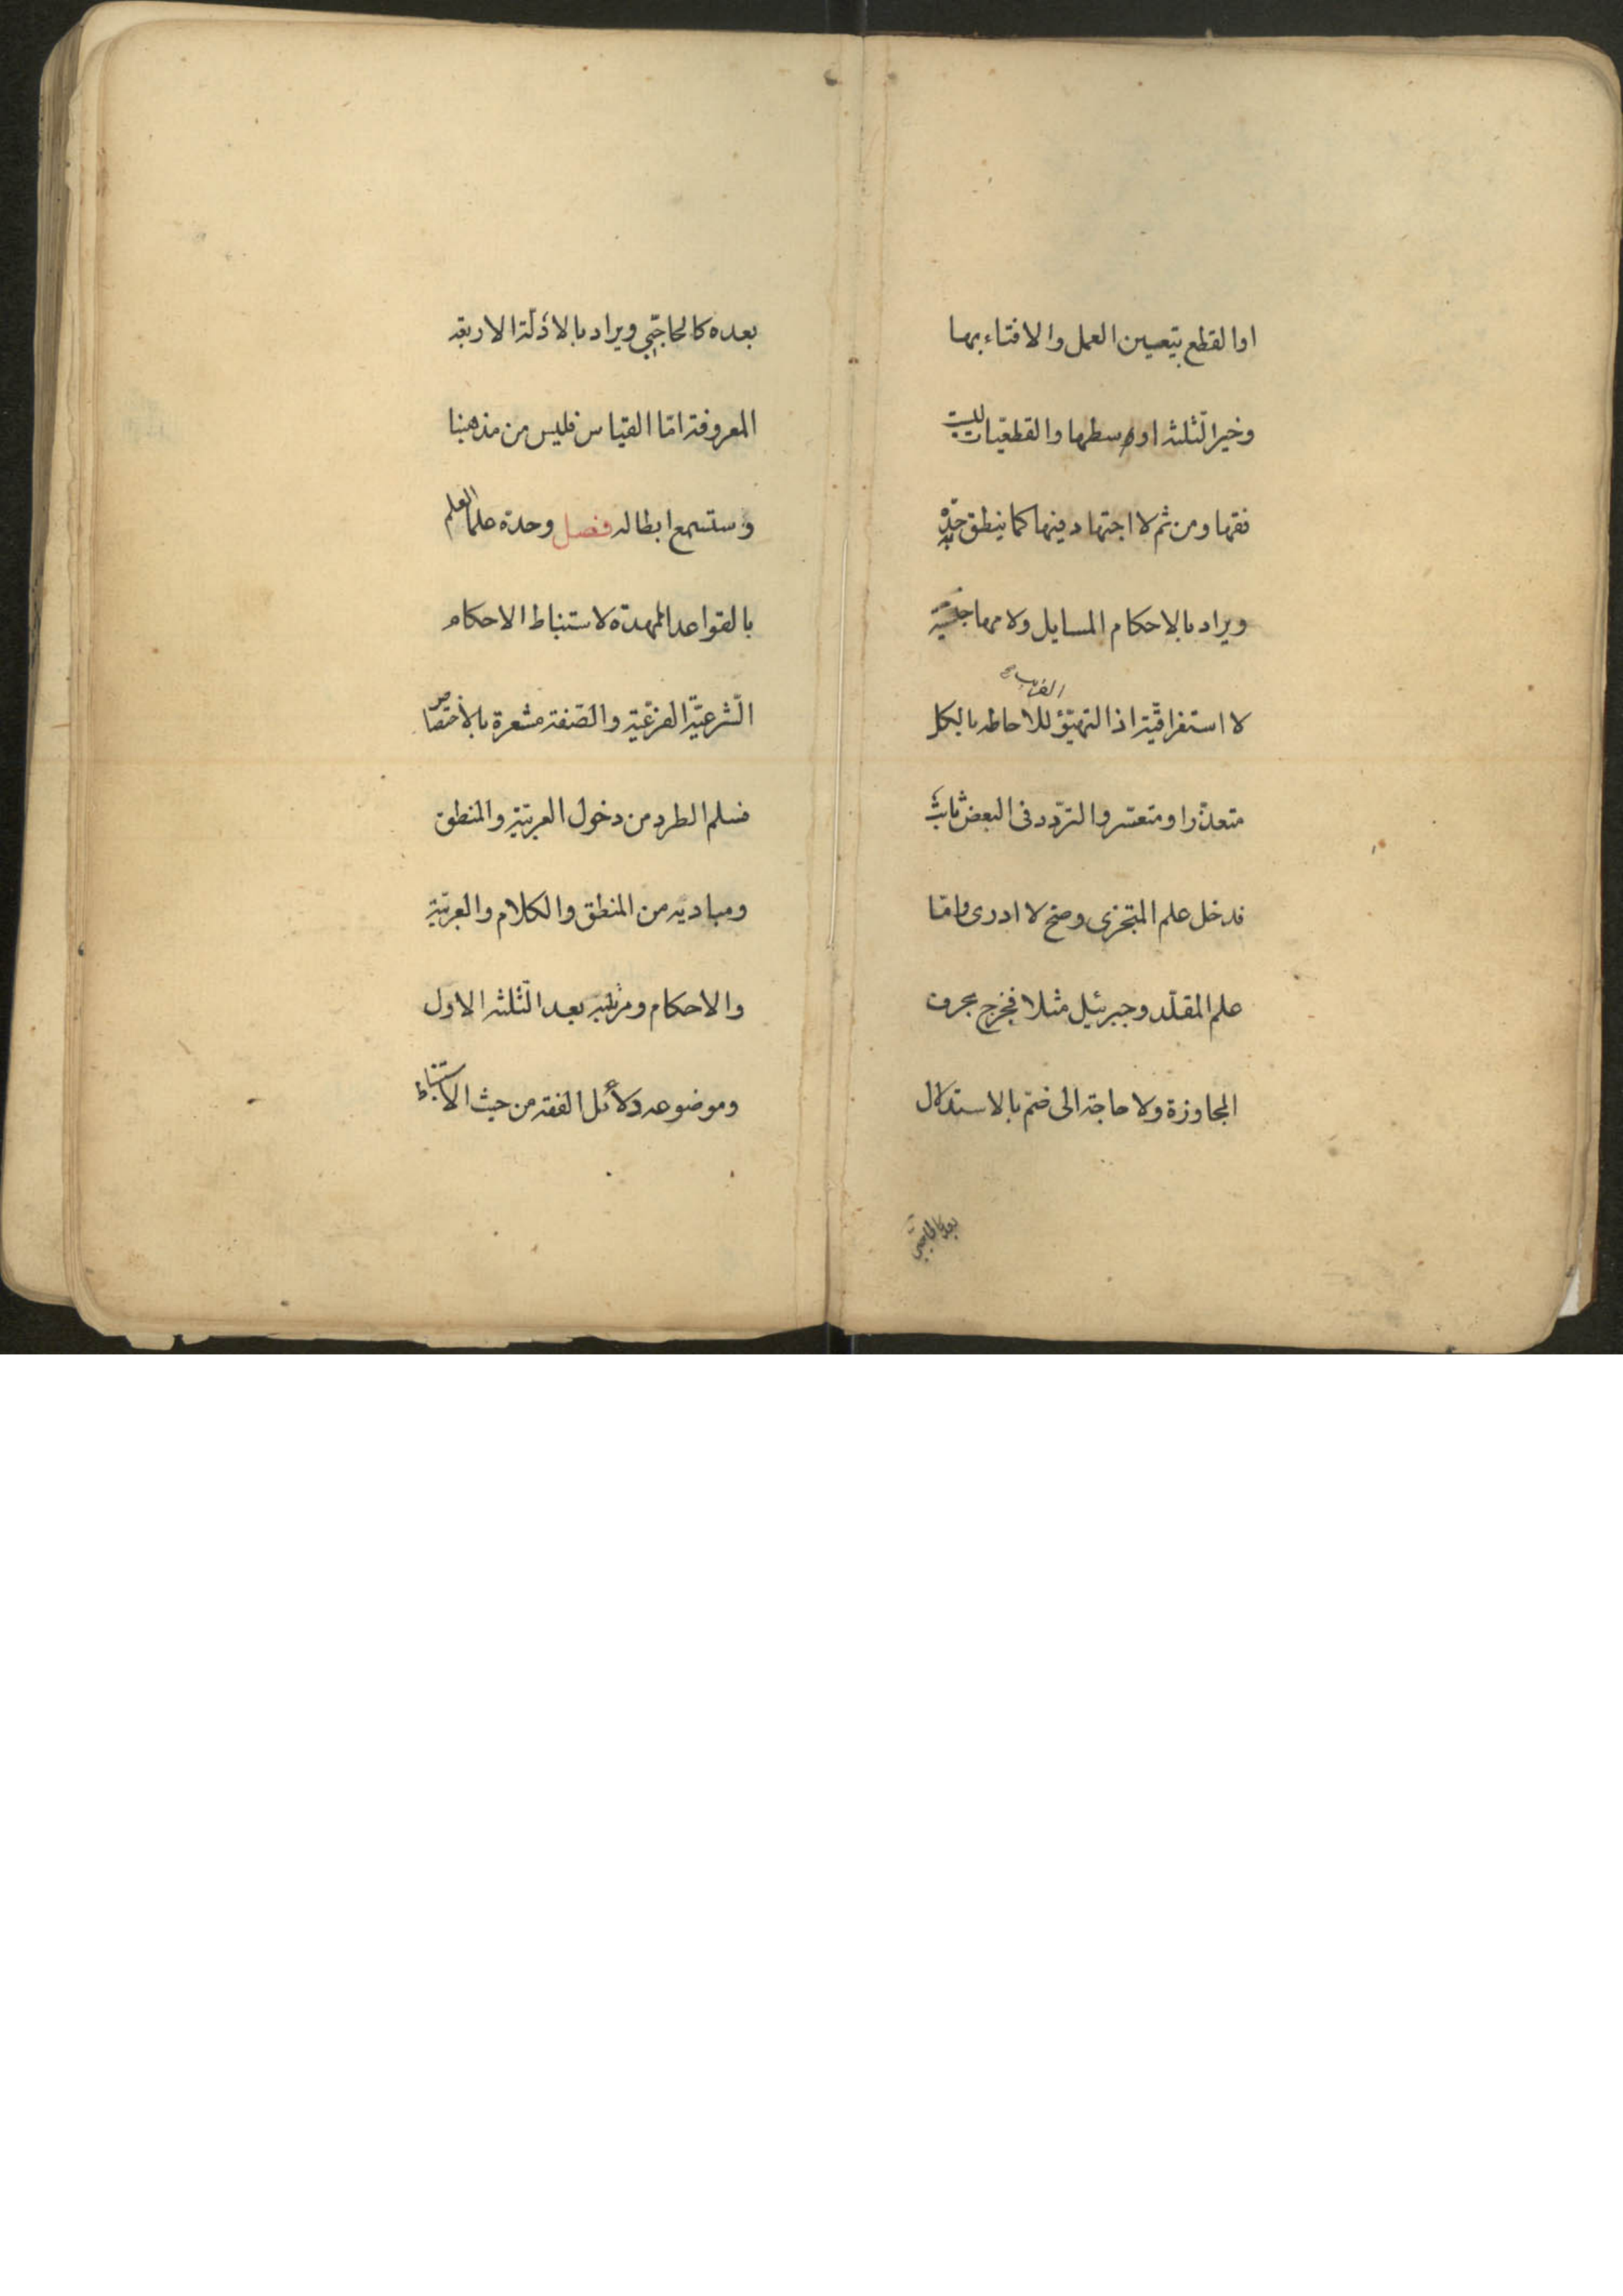 او القطع بتعيين العمل والافتاء بها
وخير الثلثه اوسطها والقطعيات ليست
فقها ومن ثم لا اجتهاد فيها كما ينطق به حدّه
ويراد بالاحكام المسايل ولامها جنسيّة
القريب
لا استغراقيّة اذ التهيّؤ للاحاطه بالكل
متعذّر او متعسّر والتردّد فى البعض ثابت
فدخل علم المتجزى وصحّ لا ادرى وامّا
علم المقلّد وجبرئيل مثلا فخرج بحرف
المجاوزة ولا حاجة الى ضمّ بالاستدلال
بعده كالحاجبي
بعده كالحاجبي ويراد بالادلّة الاربعة
المعروفة امّا القياس فليس من مذهبنا
وستسمع ابطاله فصل وحدّه علما العلم
بالقواعد الممهدة لاستنباط الاحكام
الشّرعيّة الفرعيّة والصّفة مشعرة بالاختصاص
فسلم الطرد من دخول العربيّة والمنطق
ومباديه من المنطق والكلام والعربيّة
والاحكام ومرتبته بعد الثّلثه الاول
وموضوعه دلائل الفقه من حيث الاستنباط